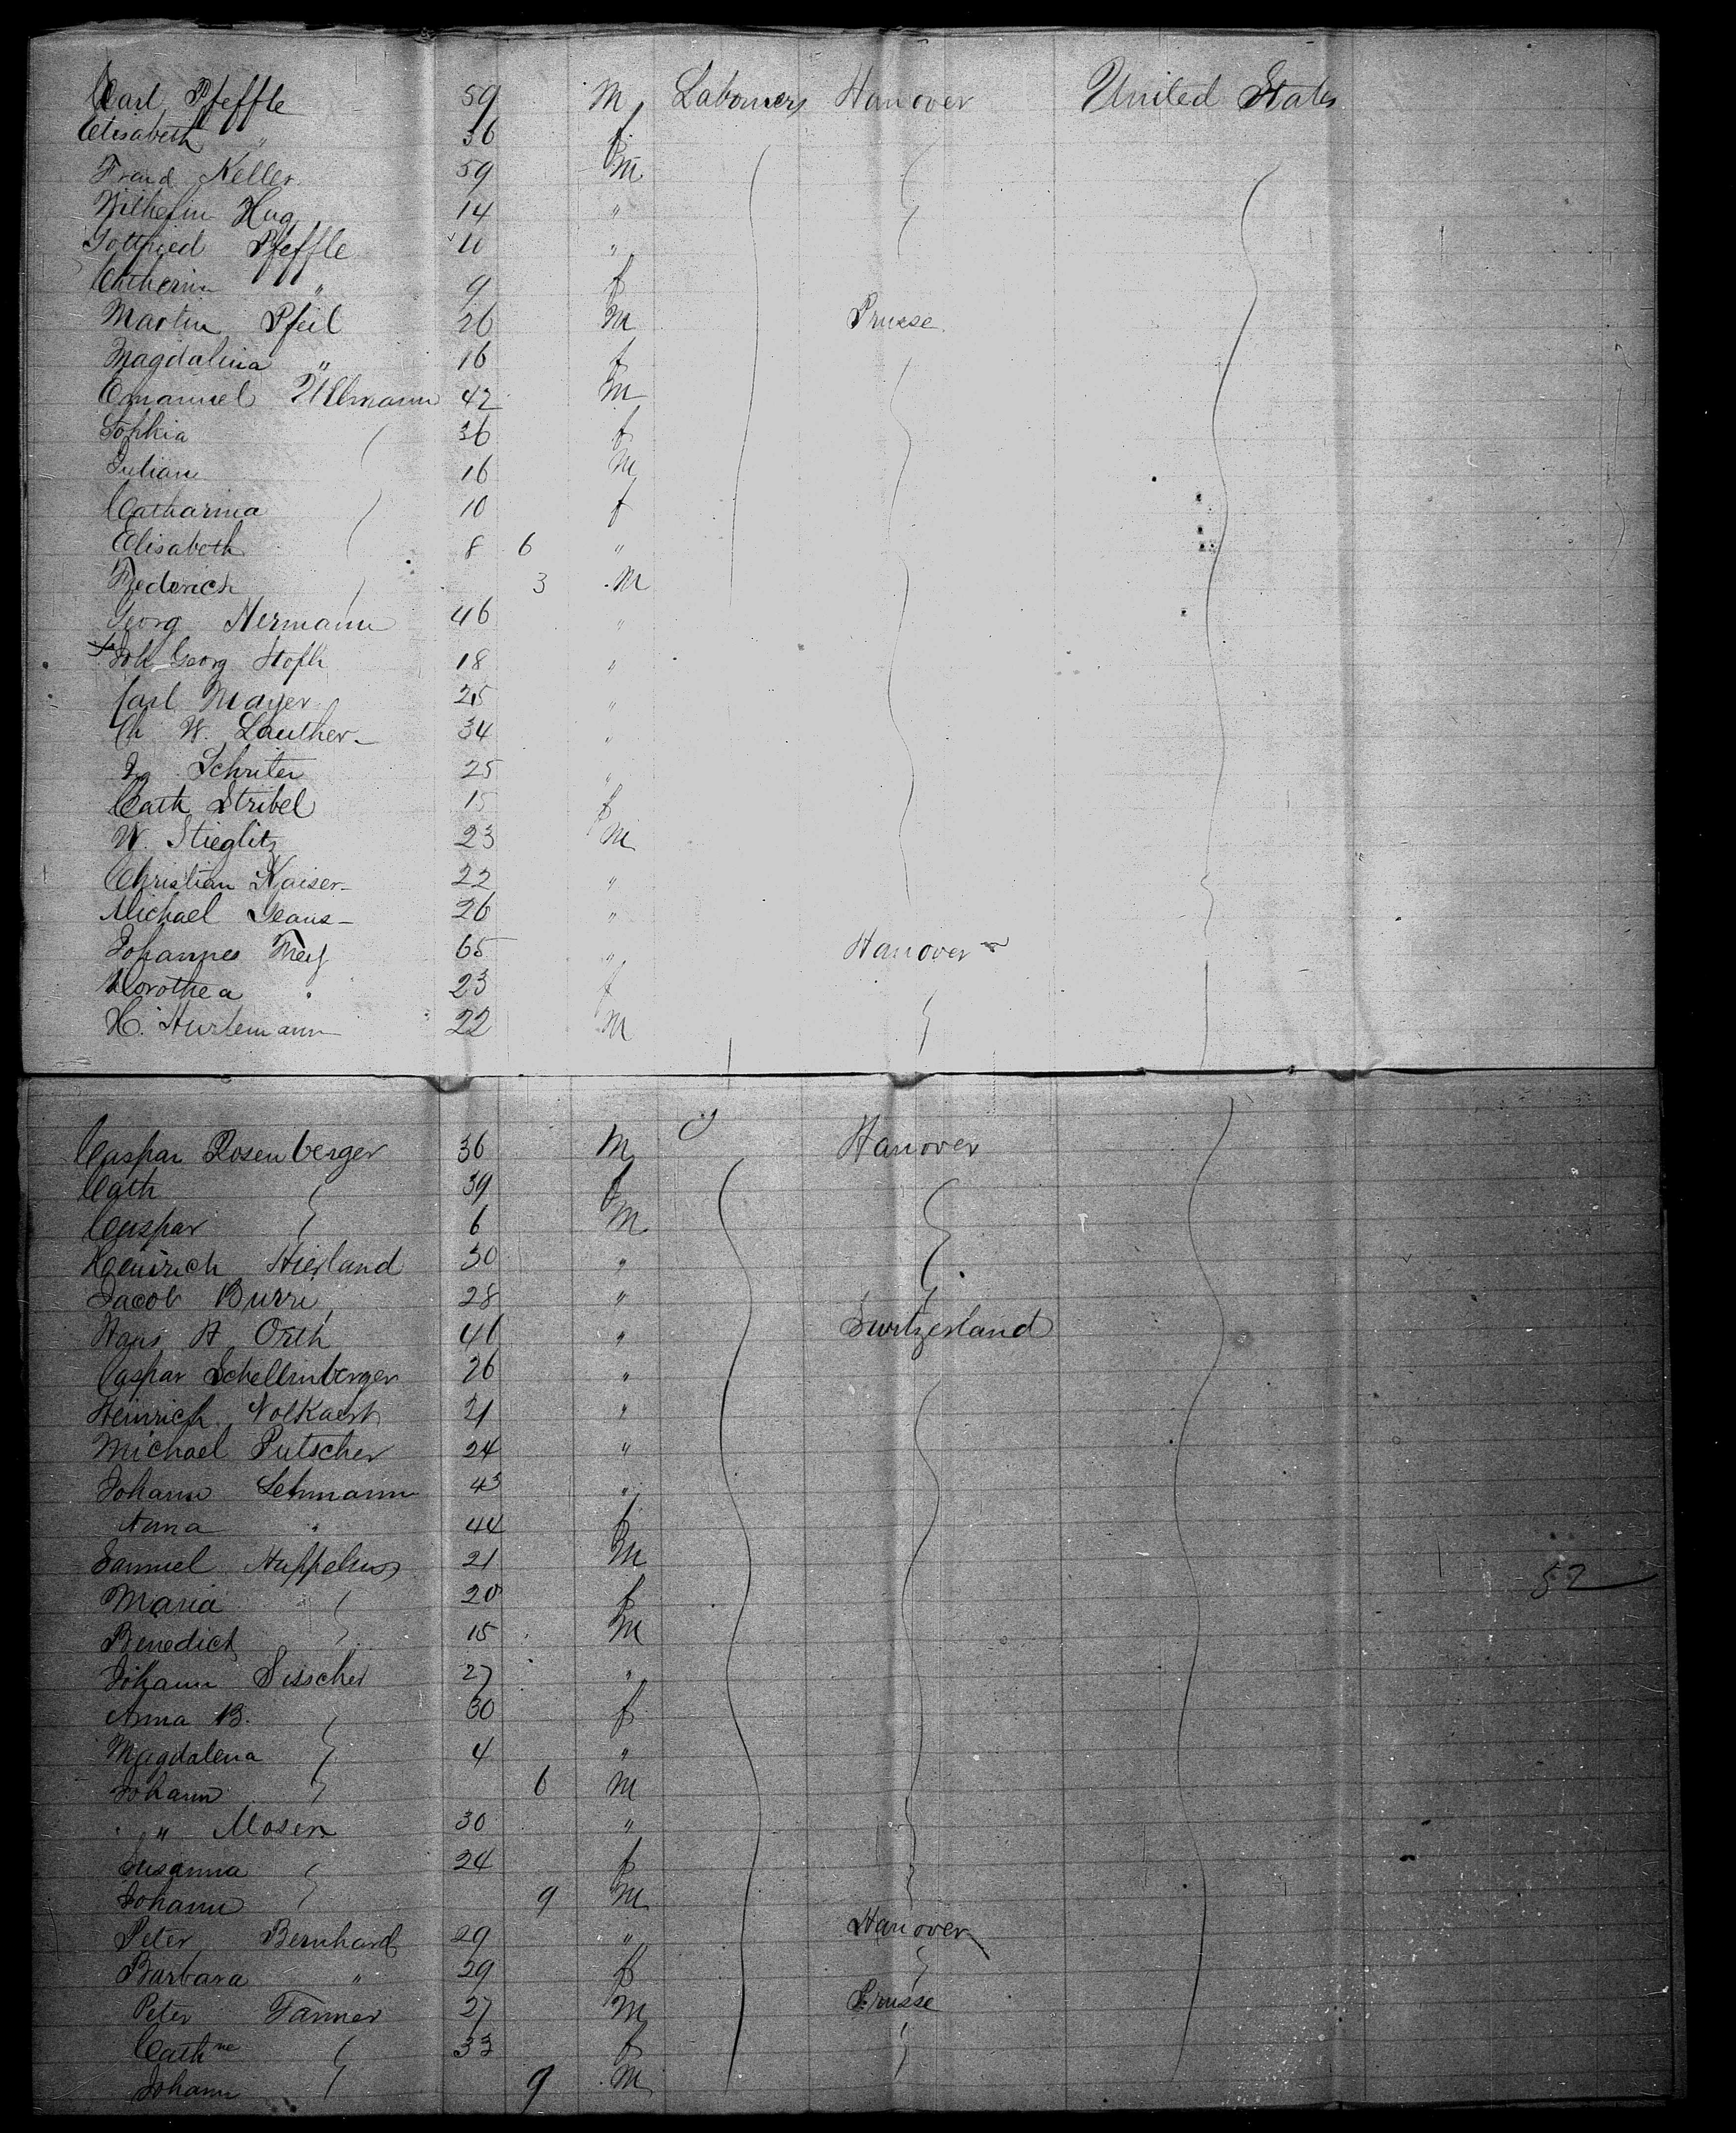 Carl Pfeffle 59 M Labourers Hanover United States
Elisabeth " 36 f
Keller 59 M
Wilhelm Hug 14 "
Gottfried Pfeffle 11 "
Catherin " 9 f
Martin Pfeil 26 M Prusse
Magdalena " 16 f
Emanuel Ullmann 42 M
Sophia 36 f
Julian 16 M
Catharina 10 f
Elisabeth 8 6 "
Frederich 3 M
Georg Hermann 46 "
Joh Georg Hoffh 18 "
Carl Mayer 25 "
Ch W. Lauther 34 "
Schriter 25 "
Cath Stribel 15 f
W. Stieglitz 23 M
Christian Kaiser 22 "
Michael 26 "
Johannes 65 " Hanover
Dorothea 23 f
H. 22 M
Caspar Rosenberger 36 M Hanover
Cath 39 f
Caspar 6 M
Heinrich Hierland 30 "
Jacob Burri 28 "
Hans H Orth 41 " Switzerland
Caspar Schellenberger 26 "
Heinrich 21 "
Michael Putscher 24 "
Johann Lehmann 43 "
Anna " 44 f
Samuel 21 M
Maria 20 f
Benedict 15 M
Johann 27 "
Anna B. 30 f
Magdalena 4 "
Johann 6 M
" Moser 30 "
Susanna 24 f
Johann 9 M
Peter Bernhard 29 " Hanover
Barbara " 29 f
Peter Tanner 27 M Prusse
Cathne 33 f
Johann 9 M
52